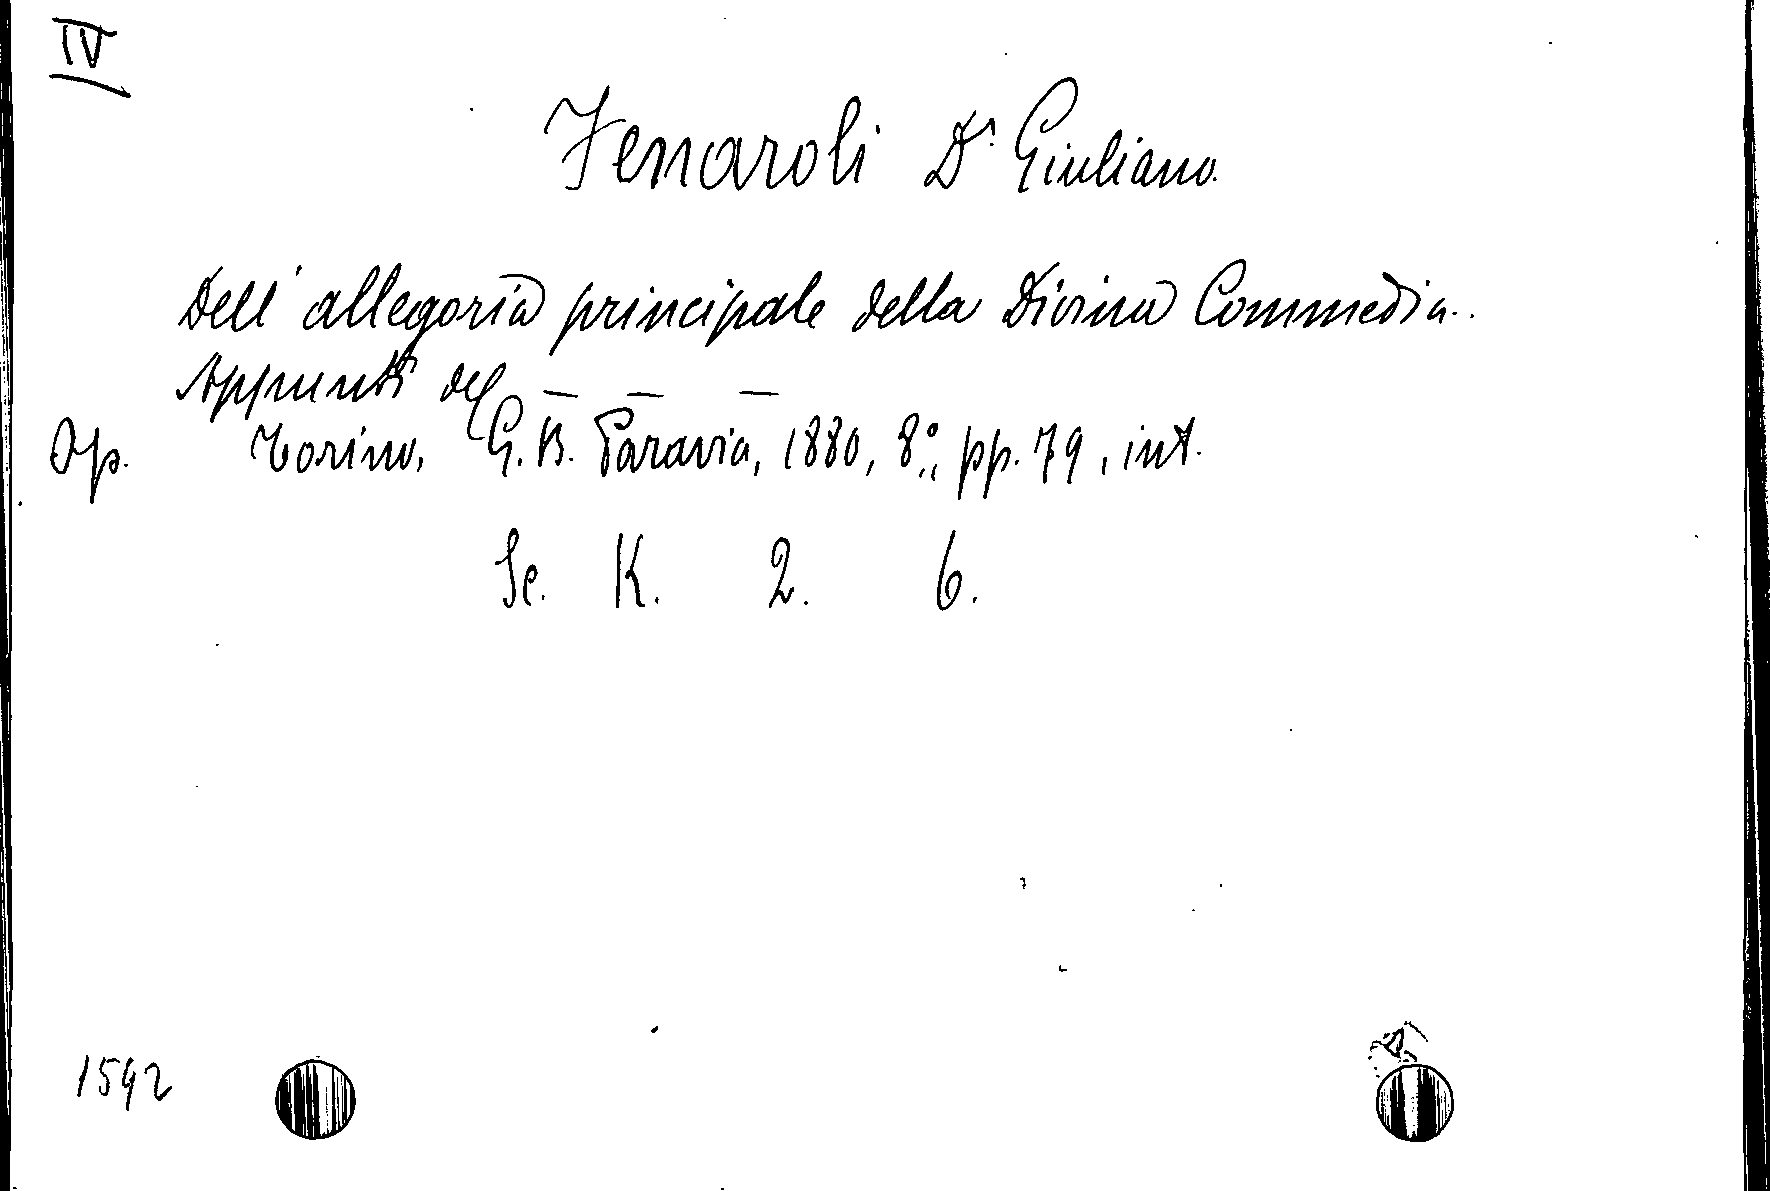 IV
Fenaroli Dr. Giuliano.
Dell'allegoria principale della Divina Commedia.
Appunti del — — —
Op. Torino, G. B. Paravia, 1880, 8º, pp. 79, int.
Sc. K. 2. 6.
1592